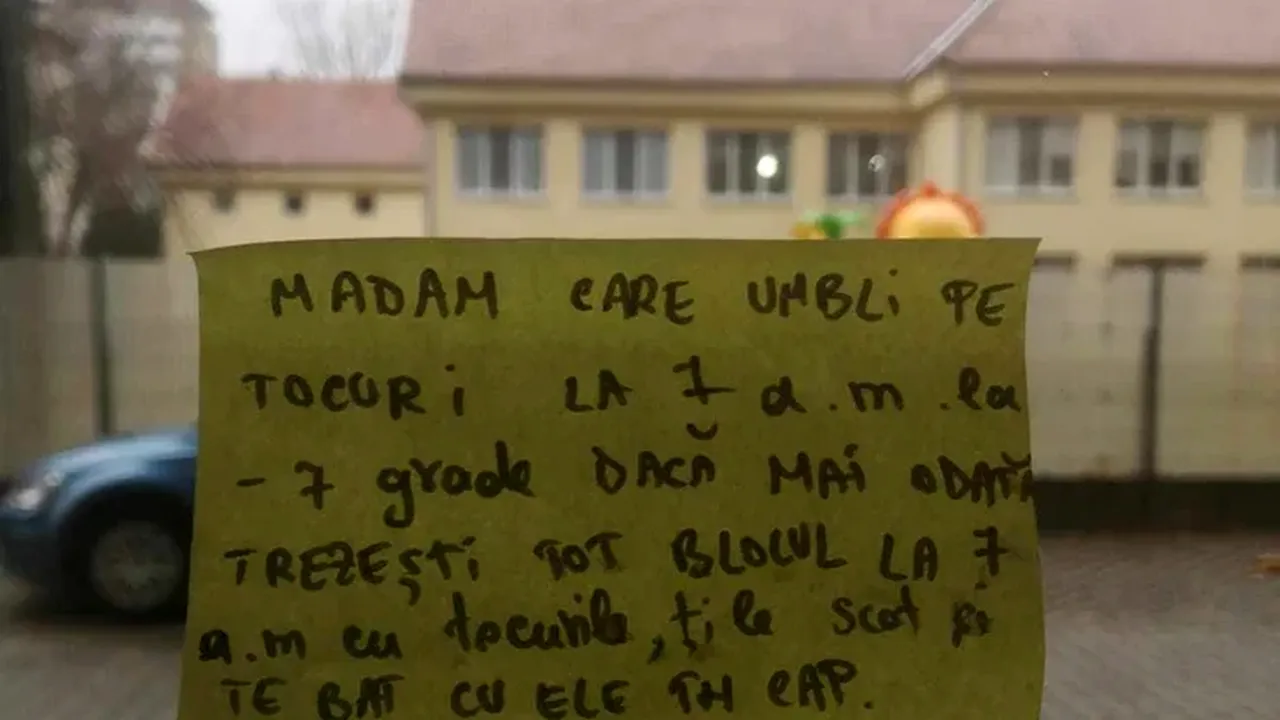 MADAM CARE UMBLi PE
TOCURi LA 7 a.m. la
- 7 grade DACĂ MAi ODATĂ
TREZEȘTi TOT BLOCUL LA 7
a.m cu tocurile, ți le scot și
TE BAT CU ELE ÎN CAP.